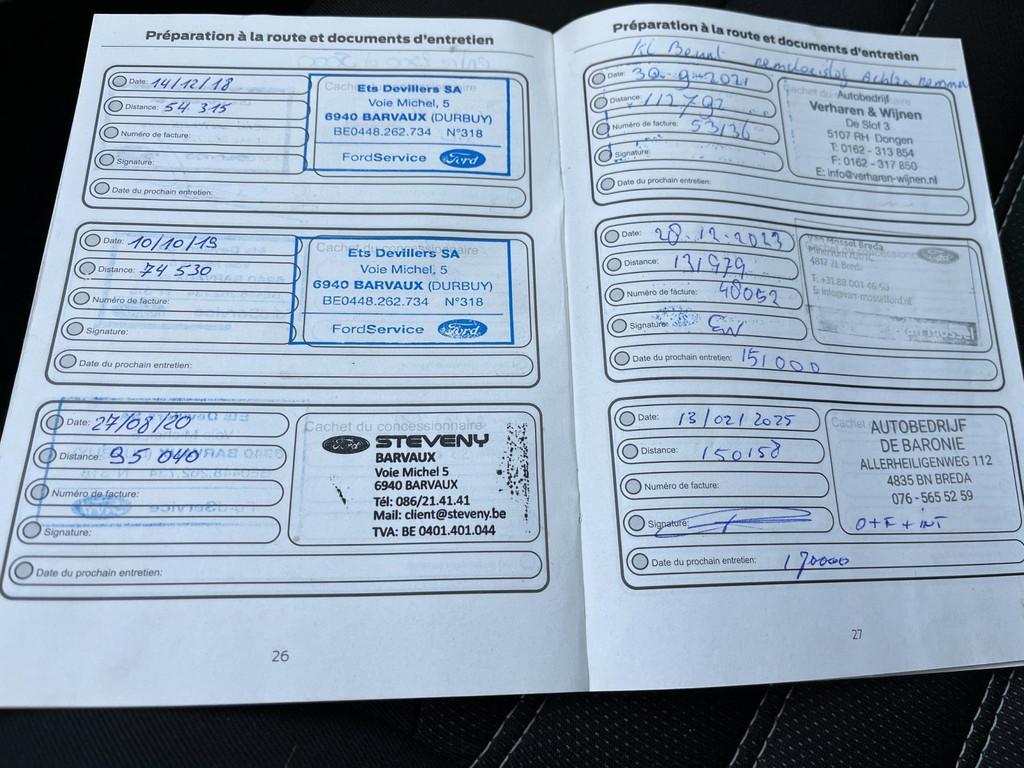 Préparation à la route et documents d'entretien
Date: 14/12/18
Distance: 54 315
Numéro de facture:
Signature:
Date du prochain entretien:
Ets Devillers SA
Voie Michel, 5
6940 BARVAUX (DURBUY)
BE0448.262.734 N°318
FordService Ford
Date: 10/10/19
Distance: 74 530
Numéro de facture:
Signature:
Date du prochain entretien:
Cachet du concessionnaire
Ets Devillers SA
Voie Michel, 5
6940 BARVAUX (DURBUY)
BE0448.262.734 N°318
FordService Ford
Date: 27/08/20
Distance: 95 040
Numéro de facture:
Signature:
Date du prochain entretien:
Cachet du concessionnaire
Ford STEVENY
BARVAUX
Voie Michel 5
6940 BARVAUX
Tél: 086/21.41.41
Mail: client@steveny.be
TVA: BE 0401.401.044
26
Préparation à la route et documents d'entretien
Kl Beurt remvloeistof Achter remmen
Date: 30-9-2021
Distance: 112792
Numéro de facture: 53136
Signature:
Date du prochain entretien:
Autobedrijf
Verharen & Wijnen
De Slof 3
5107 RH Dongen
T: 0162 - 313 854
F: 0162 - 317 850
E: info@verharen-wijnen.nl
Date: 28-12-2023
Distance: 131979
Numéro de facture: 48052
Signature:
Date du prochain entretien: 151000
Van Mossel Breda
4817 ZL Breda
T: +31 88 001 46 50
Date: 13/02/2025
Distance: 150158
Numéro de facture:
Signature:
Date du prochain entretien: 170000
Cachet
AUTOBEDRIJF
DE BARONIE
ALLERHEILIGENWEG 112
4835 BN BREDA
076 - 565 52 59
O+F+INT
27